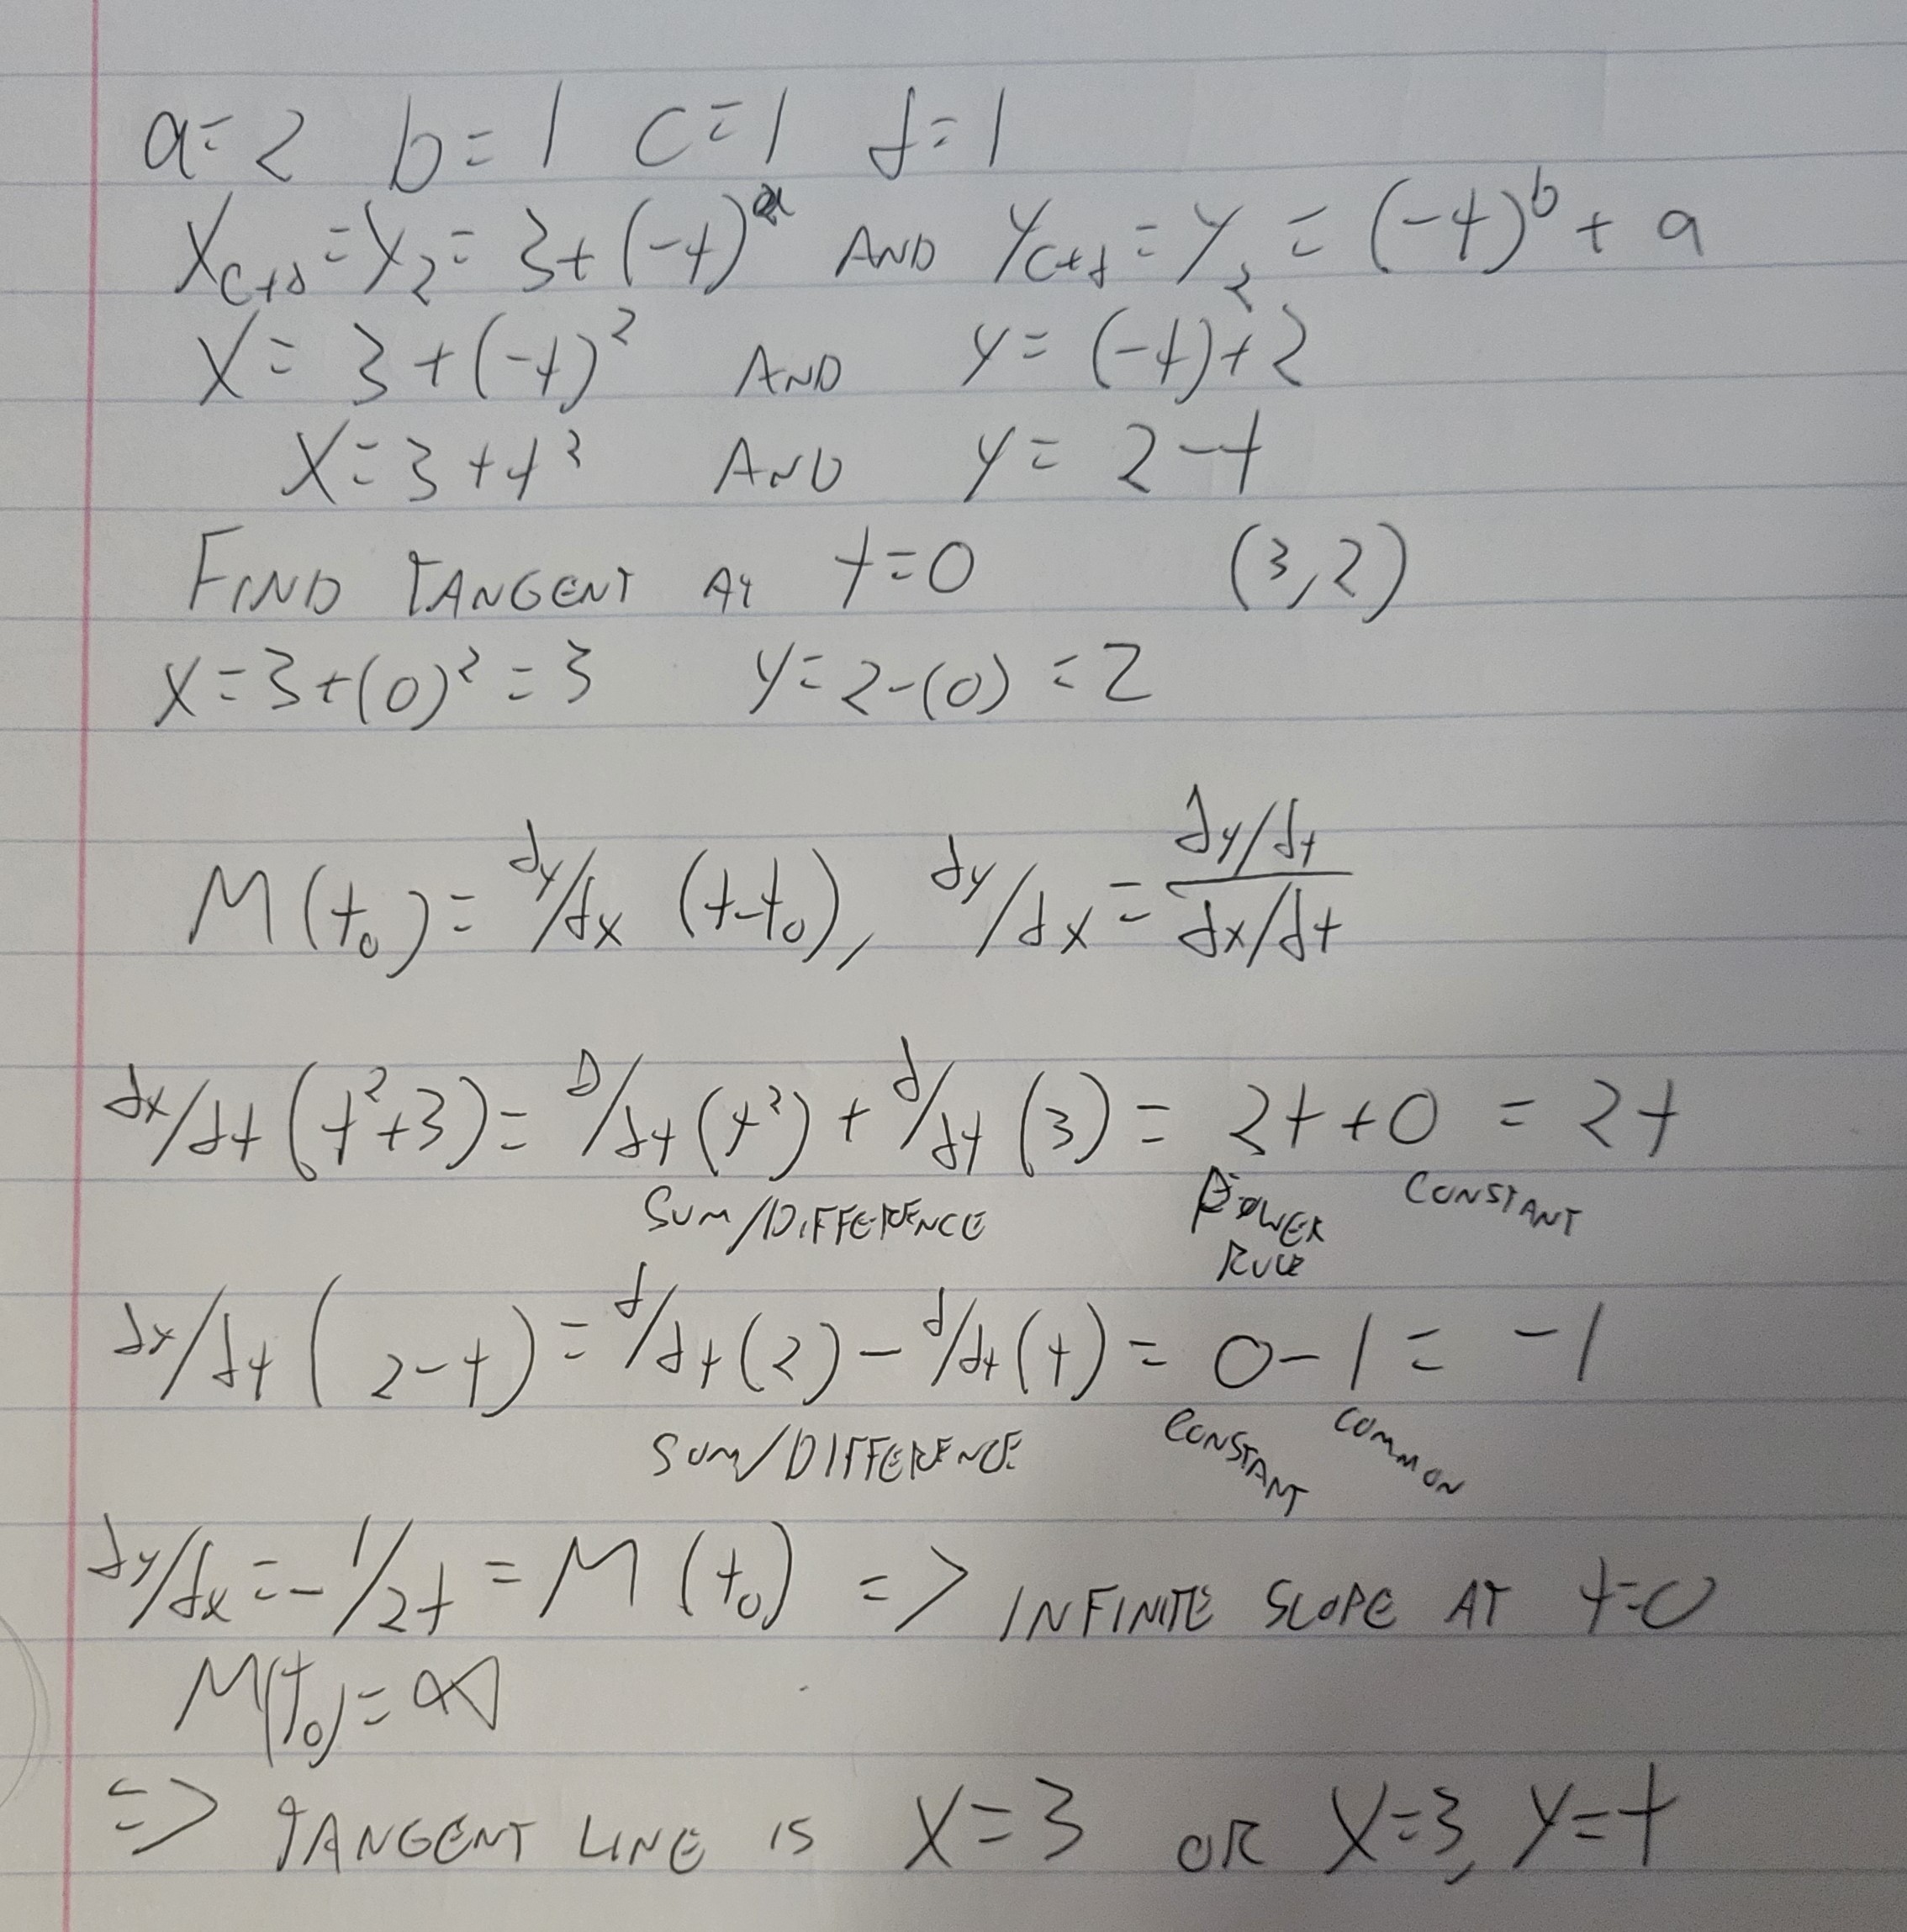 a=2 b=1 c=1 d=1
X_{c+d}=X_2=3+(-t)^a AND Y_{c+d}=Y_2=(-t)^b+a
X=3+(-t)^2 AND Y=(-t)+2
X=3+t^2 AND Y=2-t
FIND TANGENT AT t=0 (3,2)
X=3+(0)^2=3 Y=2-(0)=2
M(t_0)=dy/dx (t-t_0), dy/dx=\frac{dy/dt}{dx/dt}
dx/dt(t^2+3)=D/dt(t^2)+d/dt(3)=2t+0=2t
SUM/DIFFERENCE POWER RULE CONSTANT
dx/dt(2-t)=d/dt(2)-d/dt(t)=0-1=-1
SUM/DIFFERENCE CONSTANT COMMON
dy/dx=-1/2t=M(t_0) => INFINITE SLOPE AT t=0
M(t_0)=∞
=> TANGENT LINE IS X=3 OR X=3, Y=t